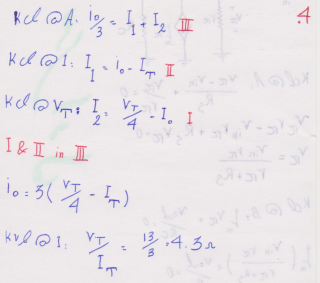 .4
Kcl @ A: io/3 = I1 + I2 III
Kcl @ I: I1 = io - IT II
Kcl @ VT: I2 = VT/4 - Io I
I & II in III
io = 3(VT/4 - IT)
Kvl @ I: VT/IT = 13/3 = 4.3 Ω